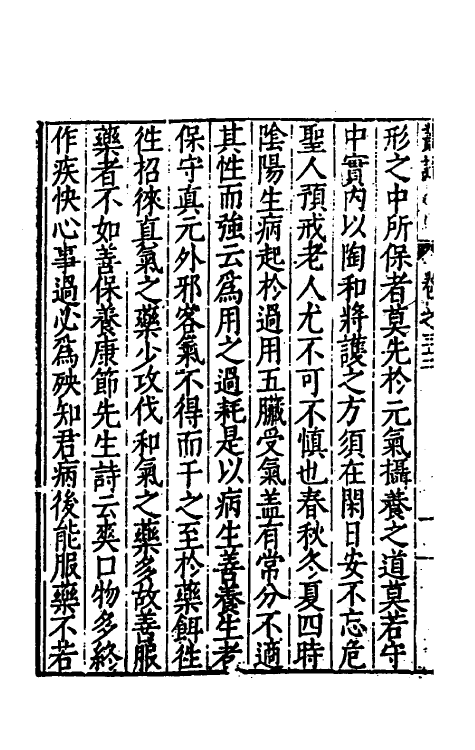 卷之三
形之中所保者莫先於元氣攝養之道莫若守
中實內以陶和將護之方須在閑日安不忘危
聖人預戒老人尤不可不慎也春秋冬夏四時
陰陽生病起於過用五臟受氣盖有常分不適
其性而強云為用之過耗是以病生善養生者
保守真元外邪客氣不得而干之至於藥餌徃
徃招徠直氣之藥少攻伐和氣之藥多故善服
藥者不如善保養康節先生詩云爽口物多終
作疾快心事過必為殃知君病後能服藥不若